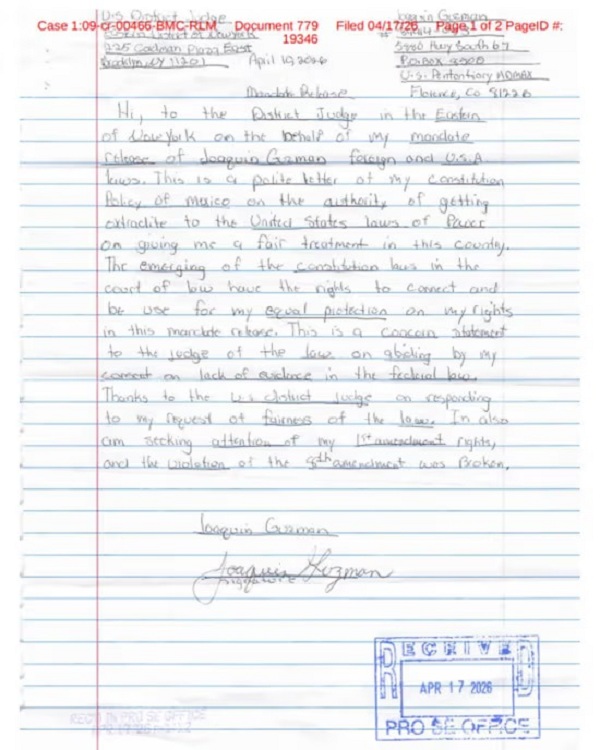 Case 1:09-cr-00466-BMC-RLM Document 779 Filed 04/17/26 Page 1 of 2 PageID #: 19346
U.S. District Judge
225 Cadman Plaza East
Brooklyn, NY 11201
April 10, 2026
Joaquin Guzman
5880 Hwy South 67
PO Box 8500
U.S. Penitentiary ADMAX
Florence, Co 81226
Mandate Release
Hi, to the District Judge in the Eastern
of New York on the behalf of my mandate
release of Joaquin Guzman foreign and U.S.A
laws. This is a polite letter of my constitution
Policy of mexico on the authority of getting
extradite to the United States laws of Power
on giving me a fair treatment in this country.
The emerging of the constitution laws in the
court of law have the rights to connect and
be use for my equal protection on my rights
in this mandate release. This is a statement
to the judge of the law on abiding by my
consent on lack of evidence in the federal law.
Thanks to the U.S district judge on responding
to my request of fairness of the law. In also
am seeking attention of my 1st amendment rights,
and the violation of the 8th amendment was Broken.
Joaquin Guzman
Joaquin Guzman
signature
RECEIVED
APR 17 2026
PRO SE OFFICE
REC'D IN PRO SE OFFICE